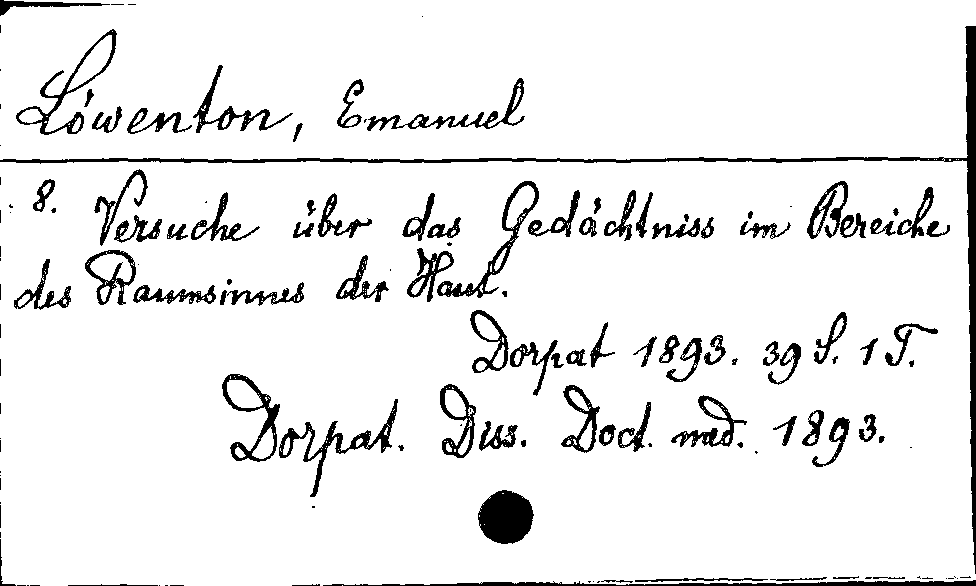 Löwenton, Emanuel
8. Versuche über das Gedächtniss im Bereiche
des Raumsinnes der Haut.
Dorpat 1893. 39 S. 1 T.
Dorpat. Diss. Doct. med. 1893.